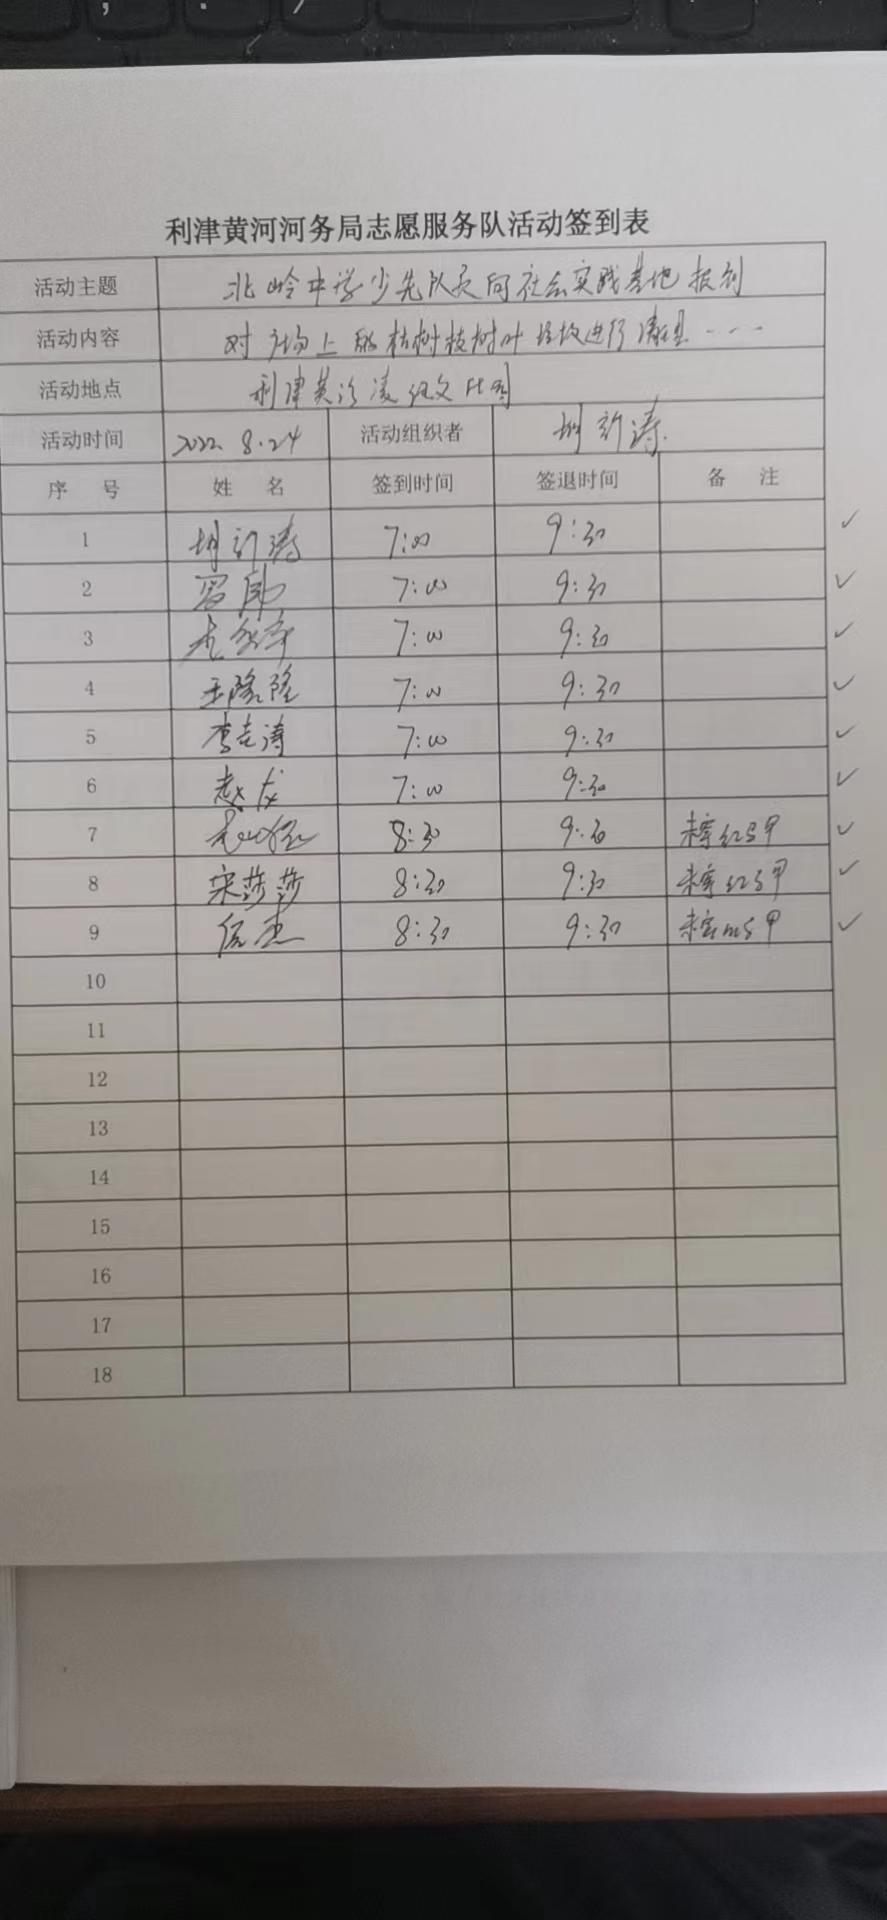 利津黄河河务局志愿服务队活动签到表
活动主题 北岭中学少先队员向社会实践基地报到
活动内容 对广场上的枯树枝树叶垃圾进行清理...
活动地点 利津黄河凌汛文化园
活动时间 2022.8.24 活动组织者 胡新涛
序 号 姓 名 签到时间 签退时间 备 注
1 胡新涛 7:00 9:30 ✓
2 7:00 9:30 ✓
3 7:00 9:30 ✓
4 王隆隆 7:00 9:30 ✓
5 涛 7:00 9:30 ✓
6 赵龙 7:00 9:30 ✓
7 8:30 9:30 未穿红马甲 ✓
8 宋莎莎 8:30 9:30 未穿红马甲 ✓
9 杰 8:30 9:30 未穿红马甲 ✓
10
11
12
13
14
15
16
17
18